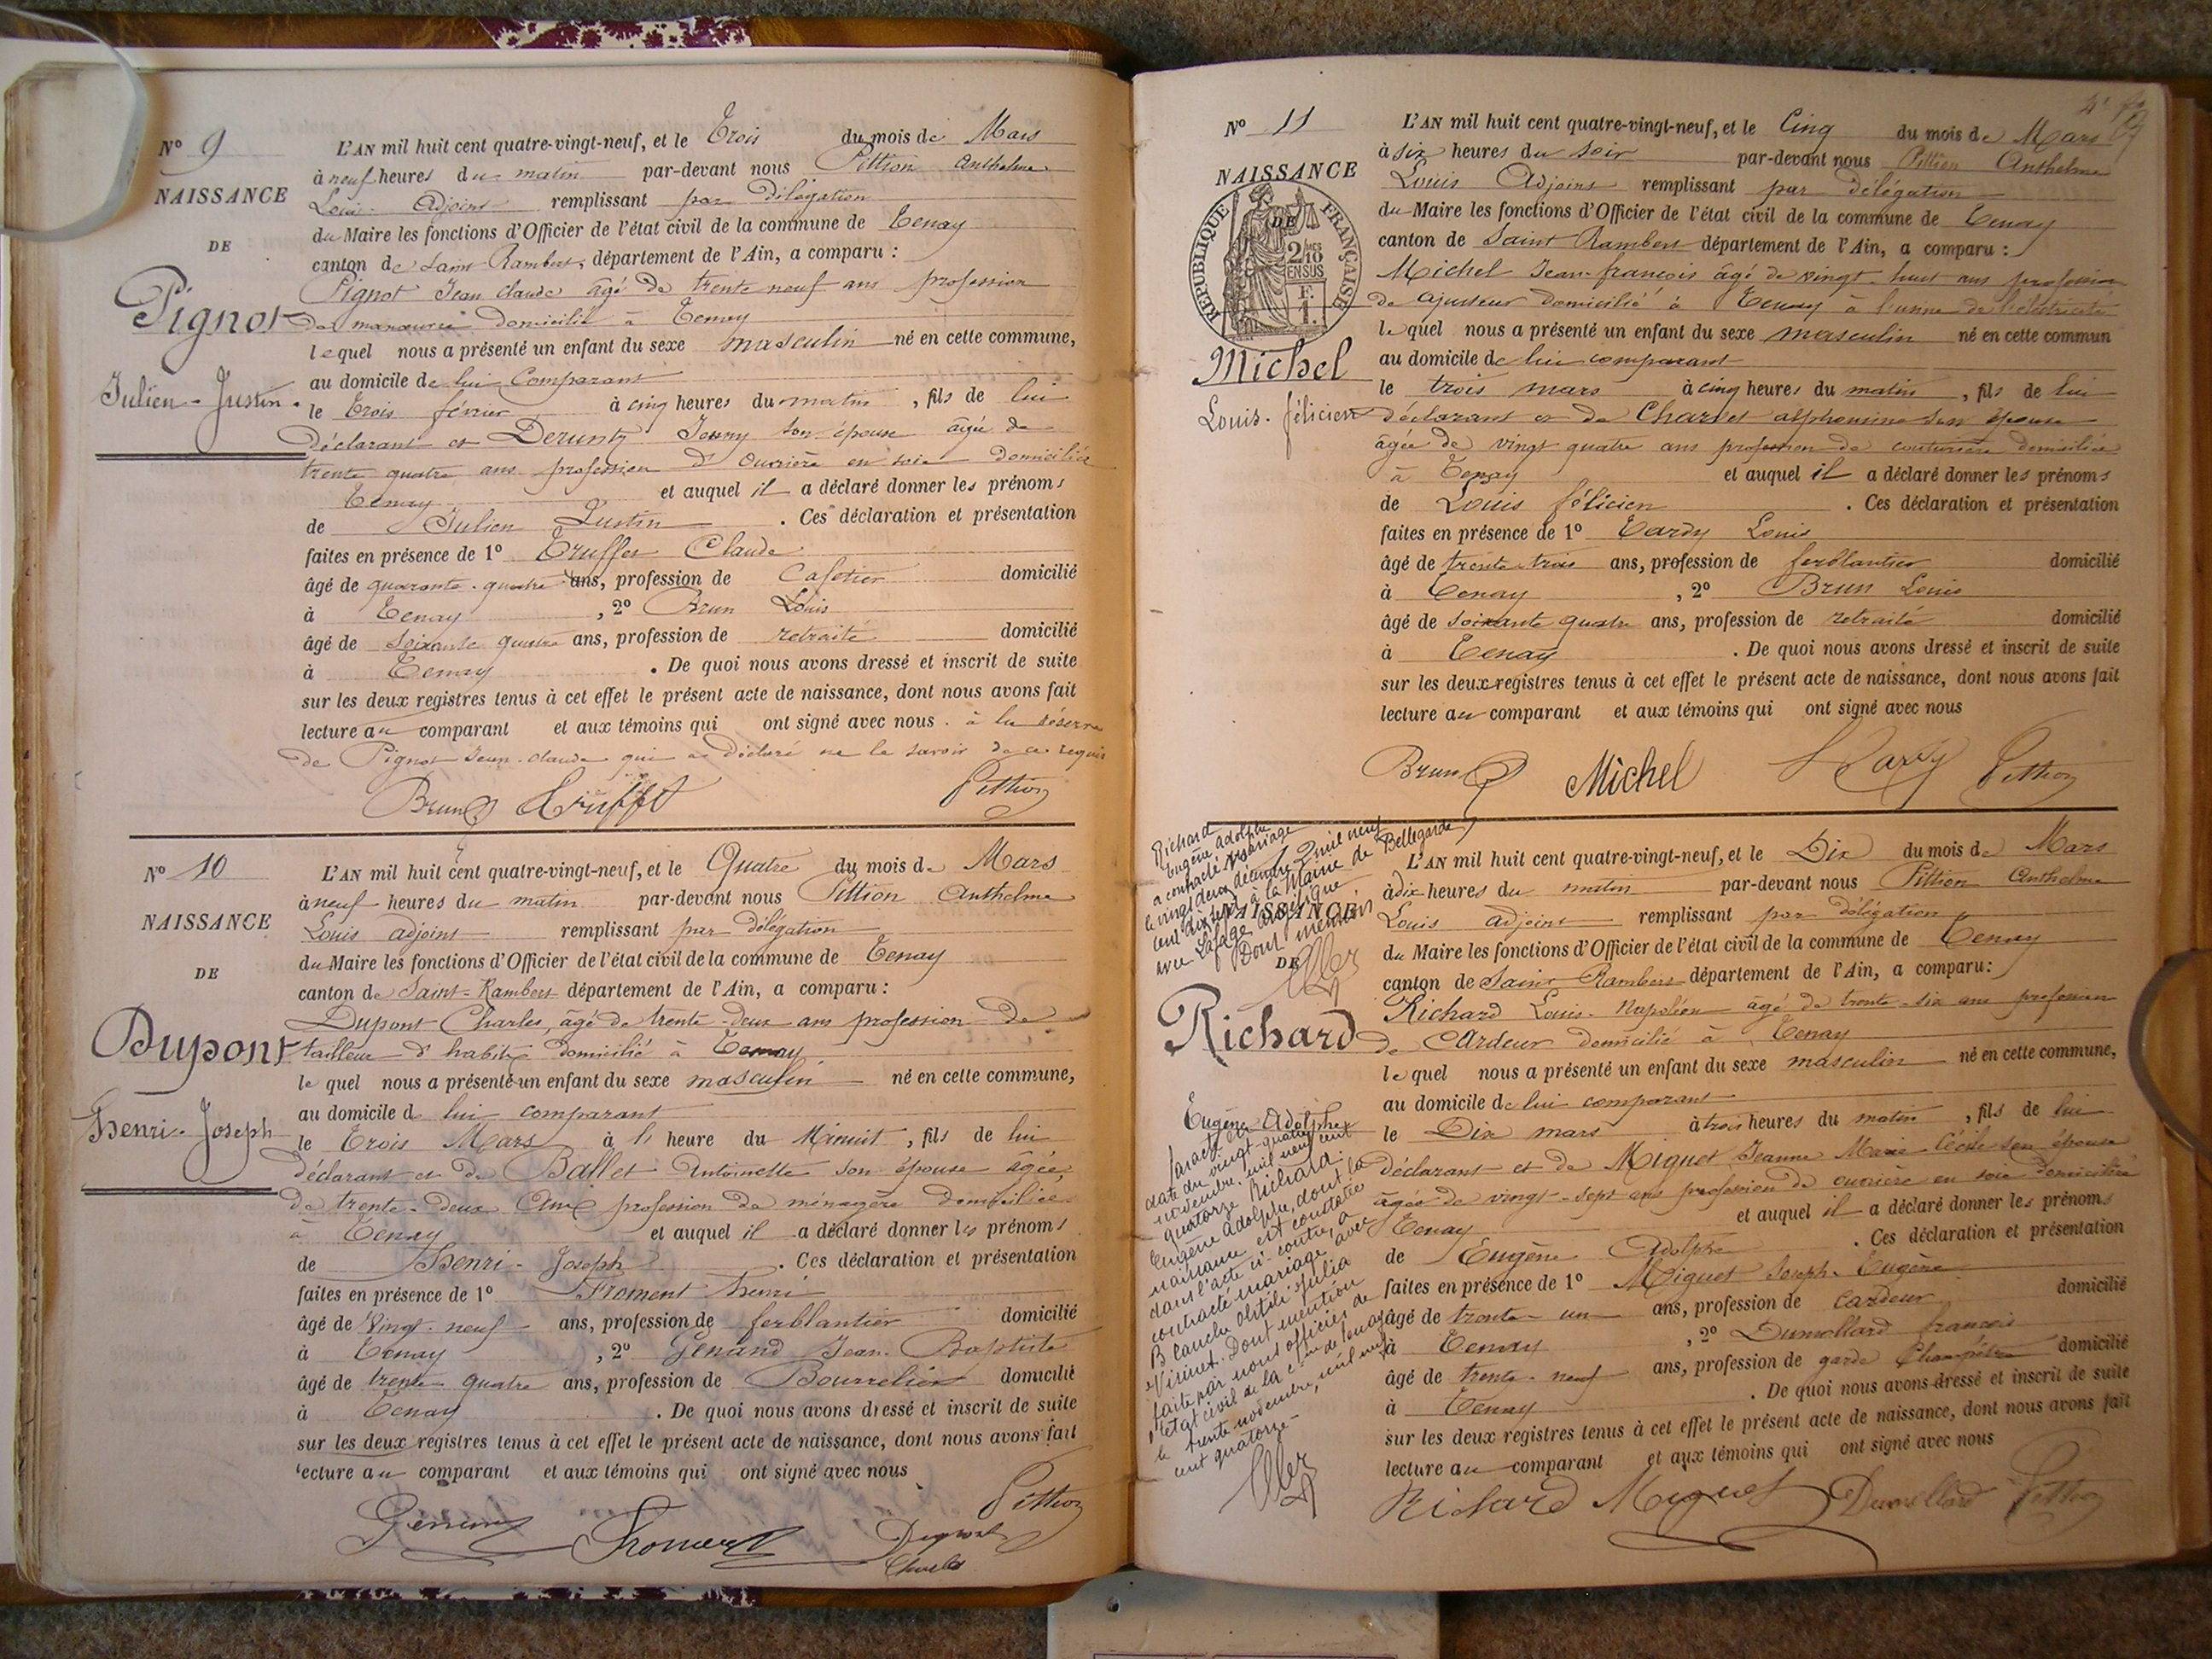 Nº 9
NAISSANCE
DE
Pignot
Julien-Justin.
L'AN mil huit cent quatre-vingt-neuf, et le Trois du mois de Mars
à neuf heures du matin par-devant nous Pittion Anthelme
Louis Adjoint remplissant par délégation
du Maire les fonctions d'Officier de l'état civil de la commune de Tenay
canton de Saint Rambert, département de l'Ain, a comparu :
Pignot Jean Claude âgé de trente neuf ans profession
de manœuvre domicilié à Tenay
lequel nous a présenté un enfant du sexe masculin né en cette commune,
au domicile de lui Comparant
le Trois février à cinq heures du matin, fils de lui
déclarant et Deruntz Jenny son épouse âgée de
trente quatre ans profession d'ouvrière en soie domiciliée
Tenay et auquel il a déclaré donner les prénoms
de Julien Justin. Ces déclaration et présentation
faites en présence de 1º Truffet Claude
âgé de quarante-quatre ans, profession de Cafetier domicilié
à Tenay, 2º Brun Louis
âgé de soixante quatre ans, profession de retraité domicilié
à Tenay. De quoi nous avons dressé et inscrit de suite
sur les deux registres tenus à cet effet le présent acte de naissance, dont nous avons fait
lecture au comparant et aux témoins qui ont signé avec nous. à la réserve
de Pignot Jean-claude qui a déclaré ne le savoir de ce requis
Brun Truffet Pittion
Nº 10
NAISSANCE
DE
Dupont
Henri-Joseph
L'AN mil huit cent quatre-vingt-neuf, et le Quatre du mois de Mars
à neuf heures du matin par-devant nous Pittion Anthelme
Louis adjoint remplissant par délégation
du Maire les fonctions d'Officier de l'état civil de la commune de Tenay
canton de Saint-Rambert département de l'Ain, a comparu :
Dupont Charles, âgé de trente-deux ans profession de
tailleur d'habits domicilié à Tenay
lequel nous a présenté un enfant du sexe masculin né en cette commune,
au domicile d lui comparant
le Trois Mars à heure du Minuit, fils de lui
déclarant et de Ballet Antoinette son épouse âgée,
de trente-deux ans profession de ménagère domiciliée
à Tenay et auquel il a déclaré donner les prénoms
de Henri-Joseph. Ces déclaration et présentation
faites en présence de 1º Froment henri
âgé de Vingt-neuf ans, profession de ferblantier domicilié
à Tenay, 2º Génand Jean-Baptiste
âgé de trente quatre ans, profession de Bourrelier domicilié
à Tenay. De quoi nous avons dressé et inscrit de suite
sur les deux registres tenus à cet effet le présent acte de naissance, dont nous avons fait
lecture au comparant et aux témoins qui ont signé avec nous
Pittion
Froment Dupont
Charles
Nº 11
NAISSANCE
DE
RÉPUBLIQUE FRANÇAISE
2/10 EN SUS
F. 1.
Michel
Louis-félicien
L'AN mil huit cent quatre-vingt-neuf, et le Cinq du mois de Mars
à six heures du soir par-devant nous Pittion Anthelme
Louis Adjoint remplissant par délégation
du Maire les fonctions d'Officier de l'état civil de la commune de Tenay
canton de Saint Rambert département de l'Ain, a comparu :
Michel Jean-françois âgé de vingt-huit ans profession
de ajusteur domicilié à Tenay à l'usine de l'électricité
lequel nous a présenté un enfant du sexe masculin né en cette commun
au domicile de lui comparant
le trois mars à cinq heures du matin, fils de lui
déclarant et de Charlet alphonsine son épouse
âgée de vingt quatre ans profession de couturière domiciliée
à Tenay et auquel il a déclaré donner les prénoms
de Louis félicien. Ces déclaration et présentation
faites en présence de 1º Tardy Louis
âgé de trente-trois ans, profession de ferblantier domicilié
à Tenay, 2º Brun Louis
âgé de soixante quatre ans, profession de retraité domicilié
à Tenay. De quoi nous avons dressé et inscrit de suite
sur les deux registres tenus à cet effet le présent acte de naissance, dont nous avons fait
lecture au comparant et aux témoins qui ont signé avec nous
Brun Michel L Tardy Pittion
Richard
Eugène adolphe
a contracté mariage
le vingt deux décembre mil neuf
cent dix sept à la Mairie de Bellegarde
avec Lafage angélique
Dont mention
NAISSANCE
DE
Richard
Eugène Adolphe
date du vingt-quatre
novembre mil neuf cent
quatorze Richard
Eugène Adolphe, dont la
naissance est constatée
dans l'acte ci-contre, a
contracté mariage avec
Blanche Julia
Dont mention
faite par nous officier de
l'état civil de la cne de Tenay
le trente novembre, mil neuf
cent quatorze-
L'AN mil huit cent quatre-vingt-neuf, et le Dix du mois de Mars
à dix heures du matin par-devant nous Pittion Anthelme
Louis adjoint remplissant par délégation
du Maire les fonctions d'Officier de l'état civil de la commune de Tenay
canton de Saint Rambert département de l'Ain, a comparu:
Richard Louis-Napoléon âgé de trente-six ans profession
de Cardeur domicilié à Tenay
lequel nous a présenté un enfant du sexe masculin né en cette commune,
au domicile de lui comparant
le Dix mars à trois heures du matin, fils de lui
déclarant et de Miguet Jeanne Marie Cécile son épouse
âgée de vingt-sept ans profession de ouvrière en soie domiciliée
Tenay et auquel il a déclaré donner les prénoms
de Eugène Adolphe. Ces déclaration et présentation
faites en présence de 1º Miguet Joseph-Eugène
âgé de trente-un ans, profession de Cardeur domicilié
à Tenay, 2º Dumollard françois
âgé de trente-neuf ans, profession de garde Champêtre domicilié
à Tenay. De quoi nous avons dressé et inscrit de suite
sur les deux registres tenus à cet effet le présent acte de naissance, dont nous avons fait
lecture au comparant et aux témoins qui ont signé avec nous
Richard Miguet Dumollard Pittion